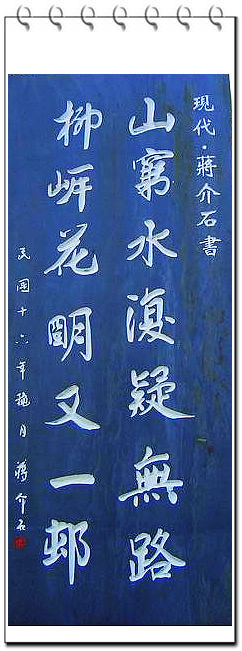 現代·蔣介石書
山窮水復疑無路
柳岸花明又一邨
民國十六年穐月 蔣介石